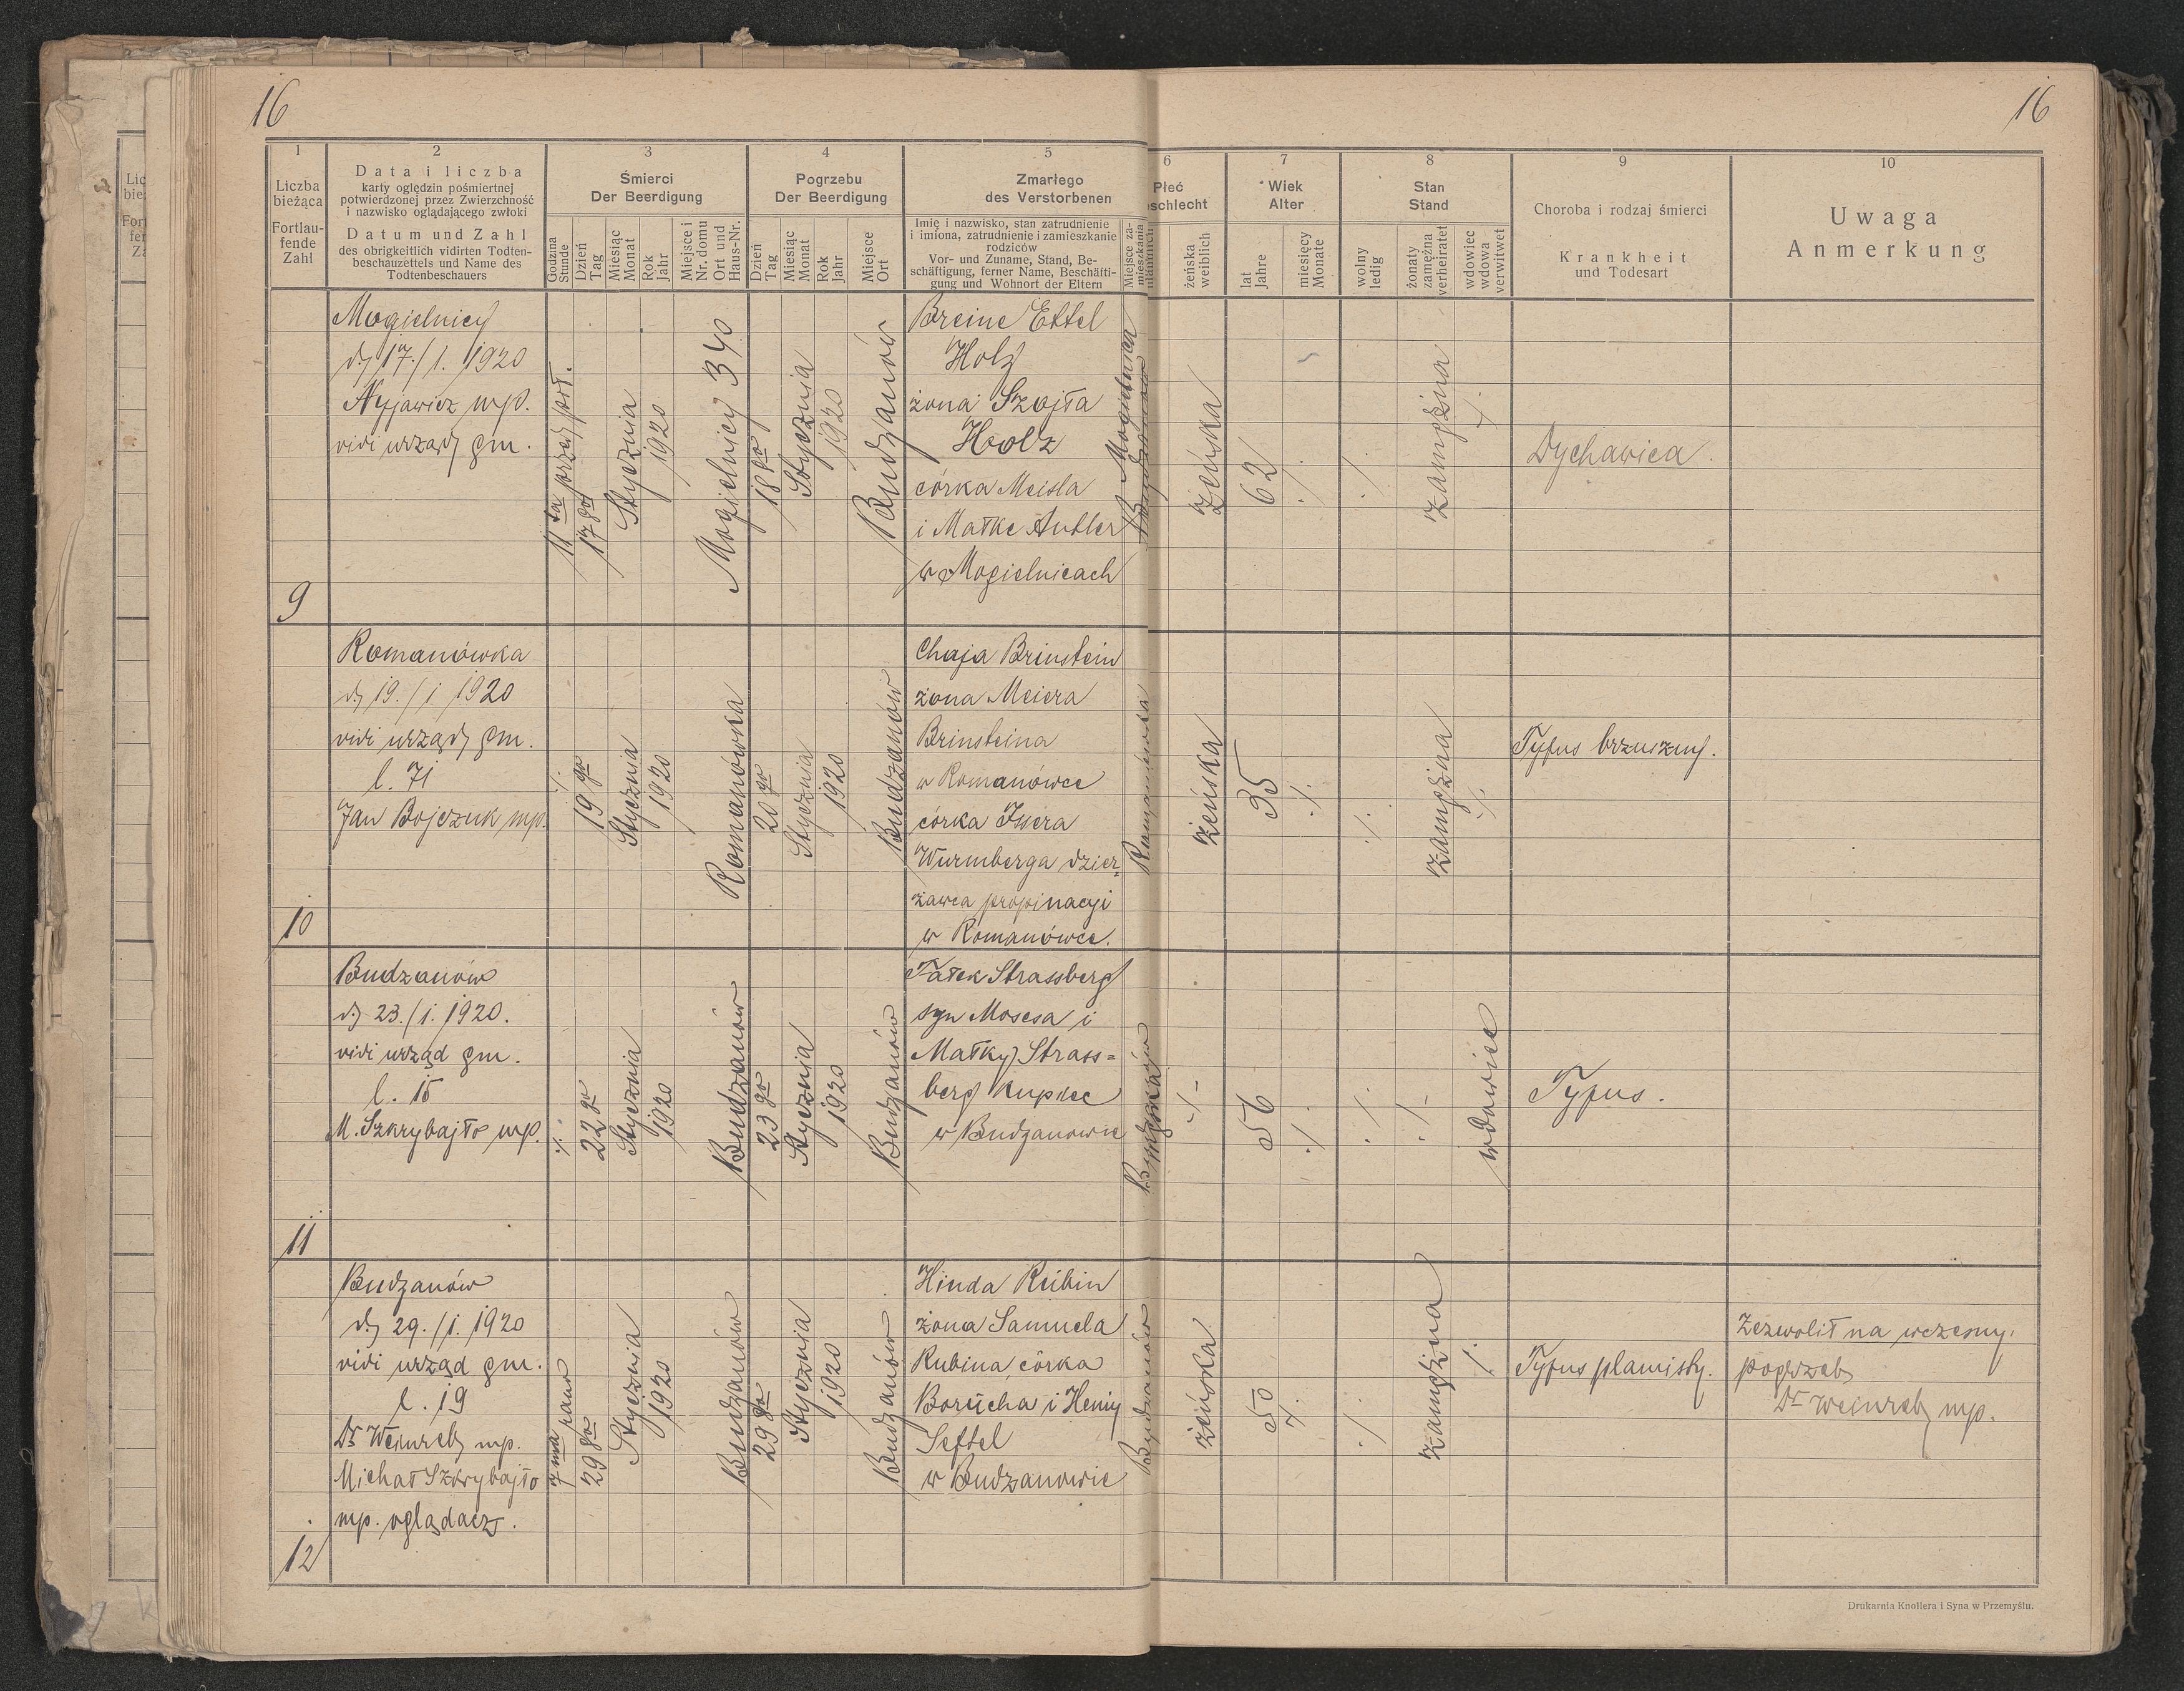 16
16
1
Liczba
bieżąca
Fortlau-
fende
Zahl
2
Data i liczba
karty oględzin pośmiertnej
potwierdzonej przez Zwierzchność
i nazwisko oglądającego zwłoki
Datum und Zahl
des obrigkeitlich vidirten Todten-
beschauzettels und Name des
Todtenbeschauers
3
Śmierci
Der Beerdigung
Godzina
Stunde
Dzień
Tag
Miesiąc
Monat
Rok
Jahr
Miejsce i
Nr. domu
Ort und
Haus-Nr.
4
Pogrzebu
Der Beerdigung
Dzień
Tag
Miesiąc
Monat
Rok
Jahr
Miejsce
Ort
5
Zmarłego
des Verstorbenen
Imię i nazwisko, stan zatrudnienie
i imiona, zatrudnienie i zamieszkanie
rodziców
Vor- und Zuname, Stand, Be-
schäftigung, ferner Name, Beschäfti-
gung und Wohnort der Eltern
Miejsce za-
mieszkania
6
Płeć
schlecht
żeńska
weiblich
7
Wiek
Alter
lat
Jahre
miesięcy
Monate
8
Stan
Stand
wolny
ledig
żonaty
zamężna
verheiratet
wdowiec
wdowa
verwitwet
9
Choroba i rodzaj śmierci
Krankheit
und Todesart
10
Uwaga
Anmerkung
9
Mogielnicy
d. 17./1. 1920
mp.
vidi urząd gm.
11 ta przed poł.
17 go
Stycznia
1920
Mogielnicy 340
18 go
Stycznia
1920
Budzanów
Breine Ettel
Holz
żona Szojła
Holz
córka Meisla
i Małke Antler
w Mogielnicach
Mogielnica
żeńska
62
./.
./.
zamężna
./.
Dychawica.
10
Romanówka
d. 19./1 1920
vidi urząd gm.
l. 71
Jan Bojczuk mp.
./.
19 go
Stycznia
1920
Romanówka
20 go
Stycznia
1920
Budzanów
Chaja Brinstein
żona Meiera
Brinsteina
w Romanówce
córka Issera
Wurmberga dzier=
żawca propinacyi
w Romanówce.
Romanówka
żeńska
35
./.
./.
zamężna
./.
Typus brzuszny.
11
Budzanów
d. 23./1. 1920.
vidi urząd gm.
l. 15
M. Szkrybajło mp.
./.
22 go
Stycznia
1920
Budzanów
23 go
Stycznia
1920
Budzanów
Fałek Strassberg
syn Mosesa i
Małky Strass=
berg kupiec
w Budzanowie
Budzanów
./.
56
./.
./.
./.
wdowiec
Typus.
12
Budzanów
d. 29./1. 1920
vidi urząd gm.
l. 19
Dr Weinreb mp.
Michał Szkrybajło
mp. oglądacz.
7 ma rano
29 go
Stycznia
1920
Budzanów
29 go
Stycznia
1920
Budzanów
Hinda Reibin
żona Samuela
Rubina córka
Borucha i Heni
Seftel
w Budzanowie
Budzanów
żeńska
50
./.
./.
zamężna
./.
Typus plamisty.
Zezwolił na wczesny.
pogrzeb
Dr Weinreb mp.
Drukarnia Knollera i Syna w Przemyślu.